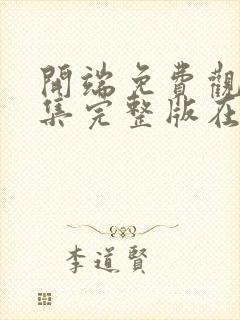 開端免費觀
集完整版在
李道賢